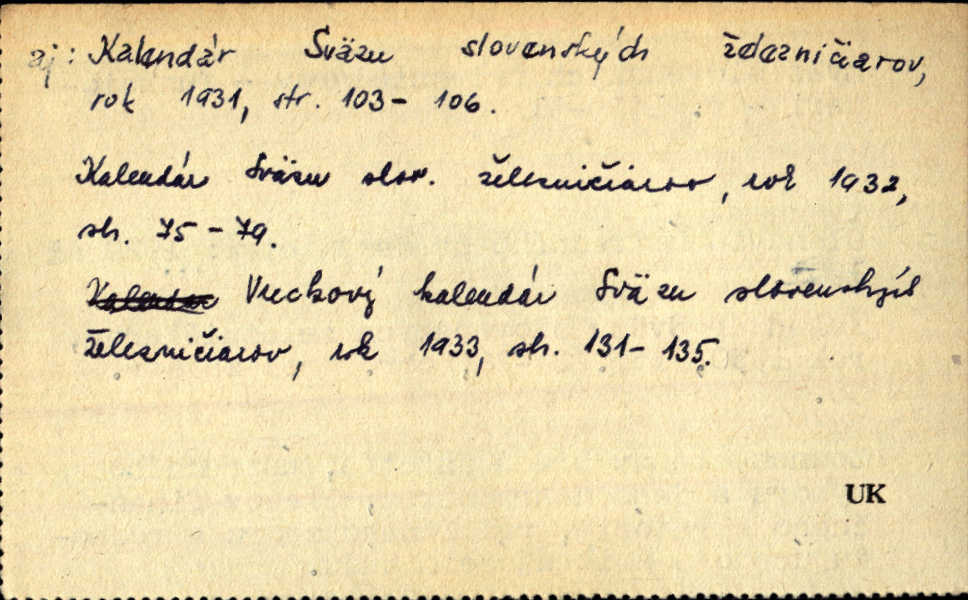 aj: Kalendár Sväzu slovenských železničiarov,
rok 1931, str. 103- 106.
Kalendár Sväzu slov. železničiarov, rok 1932,
str. 75 - 79.
Vreckový kalendár Sväzu slovenských
železničiarov, rok 1933, str. 131- 135.
UK